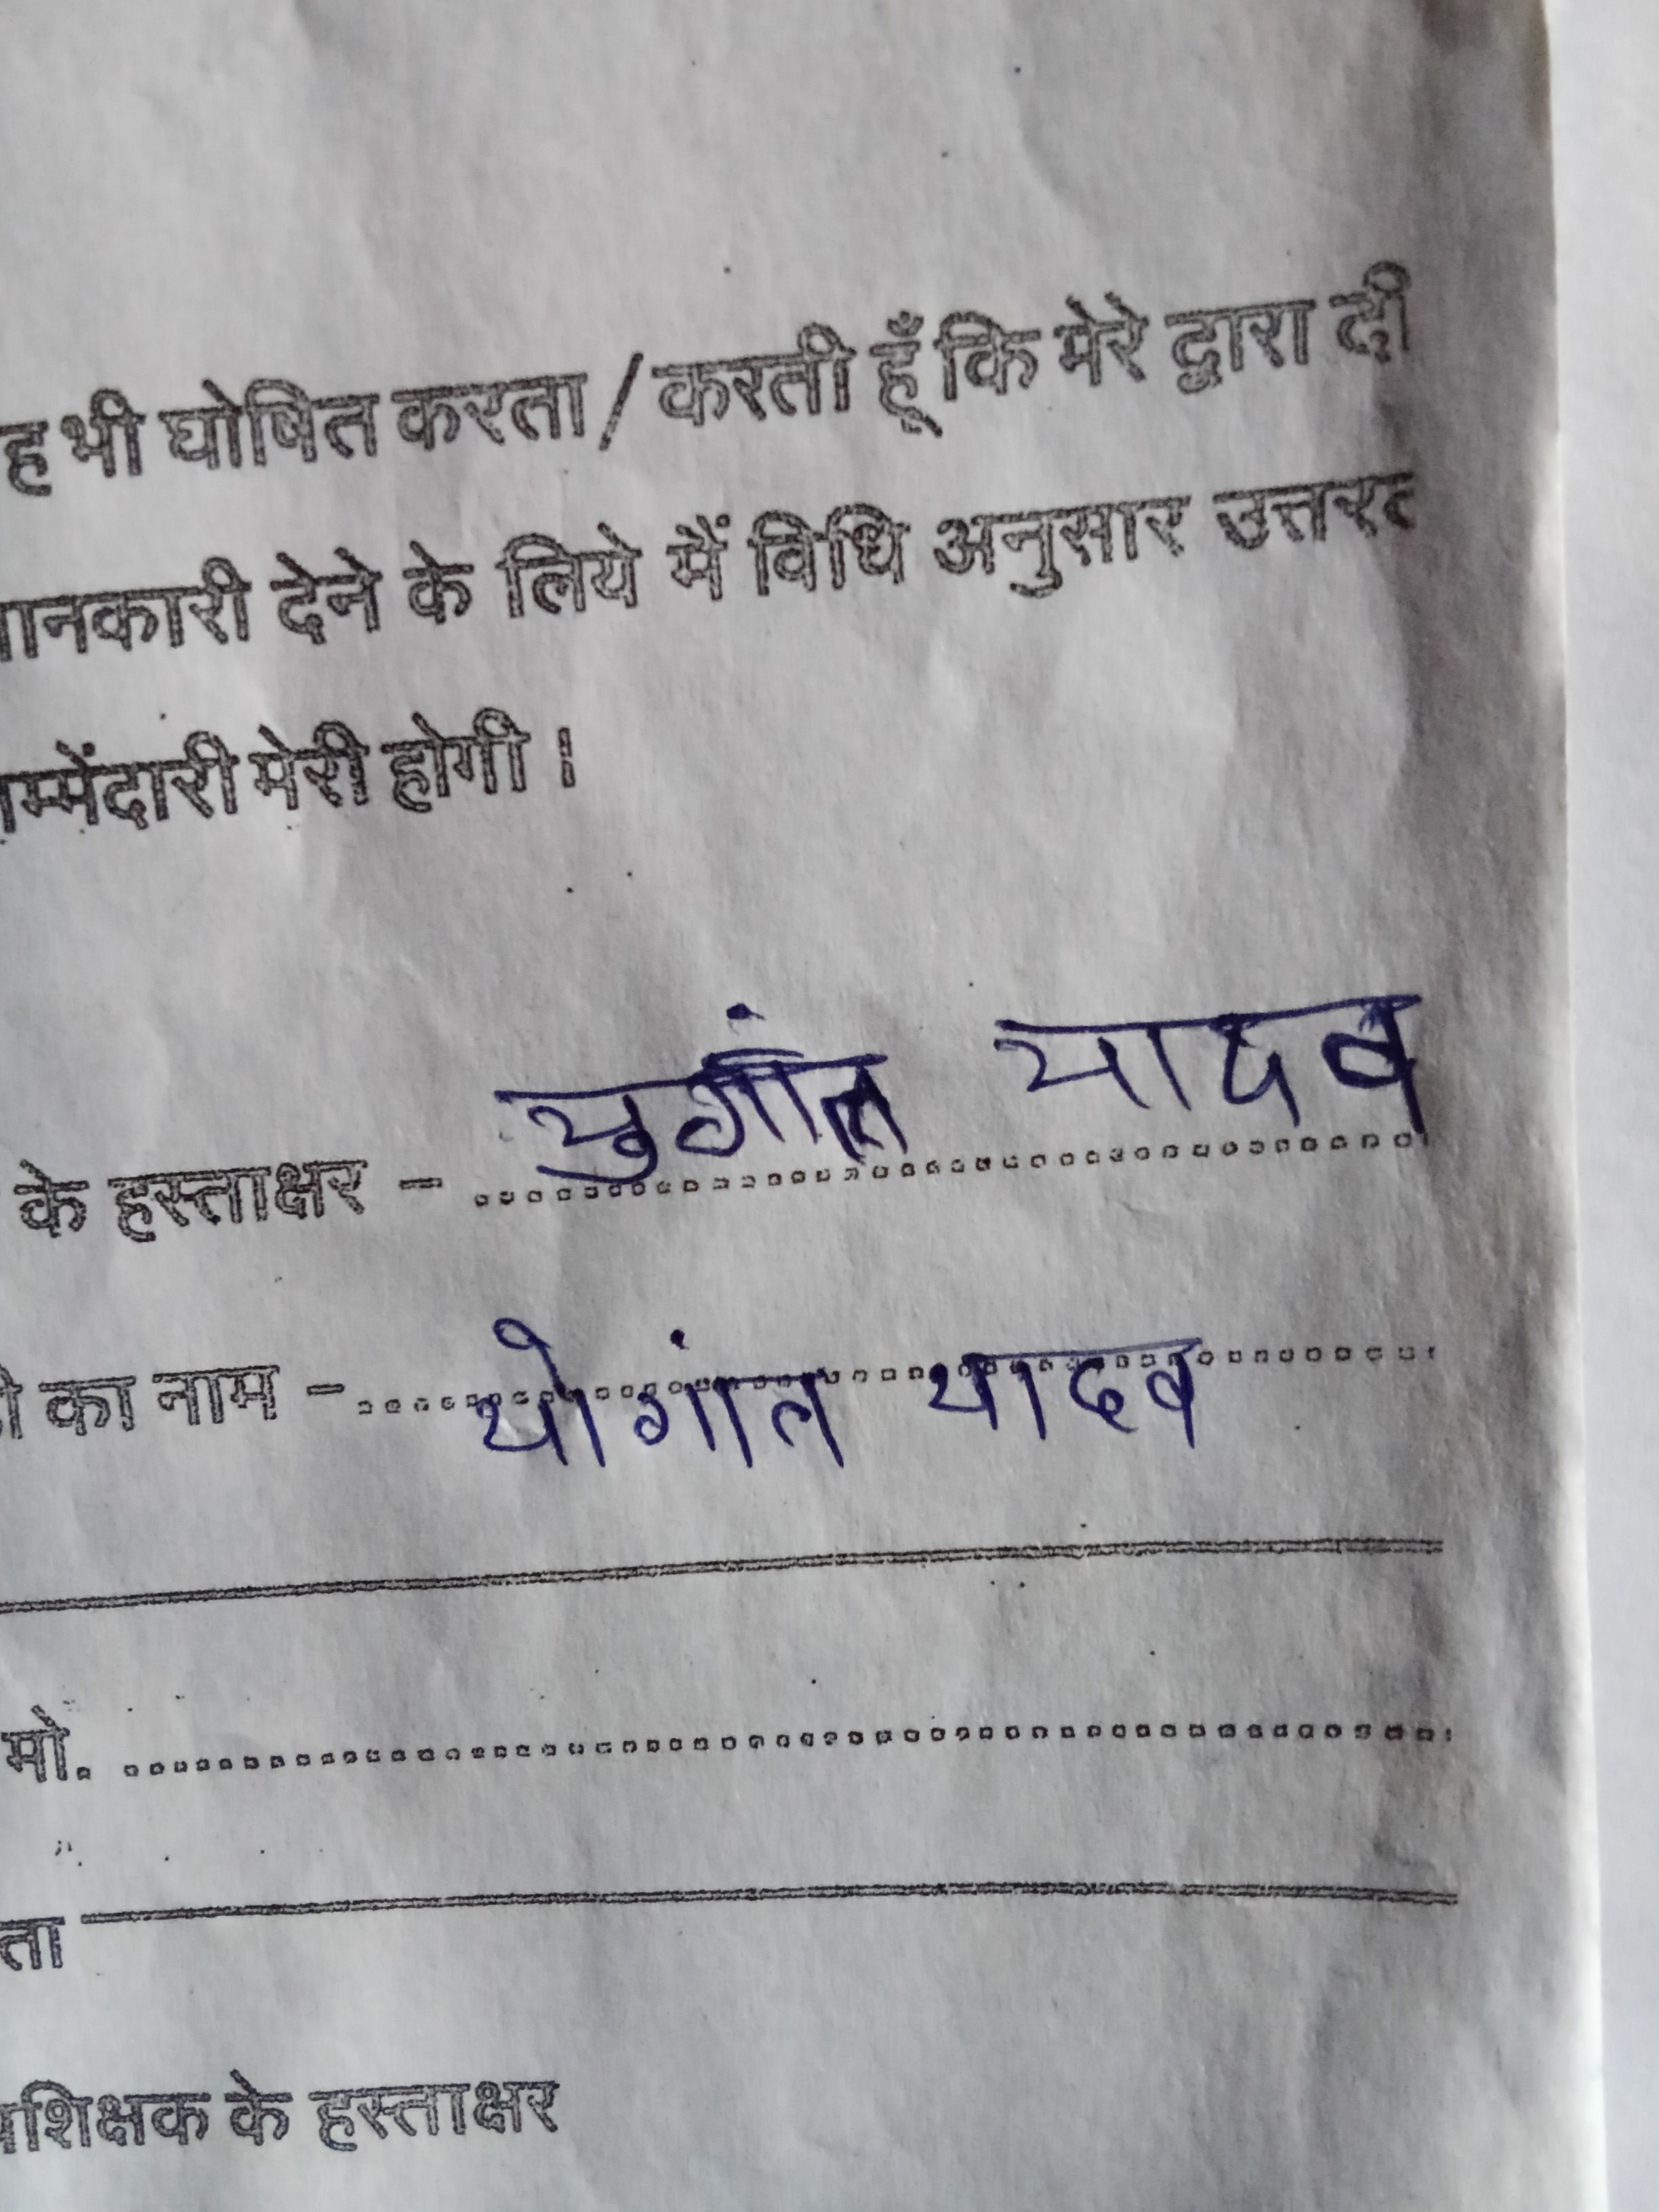 ह भी घोषित करता / करती हूँ कि मेरे द्वारा दी
ानकारी देने के लिये मैं विधि अनुसार उत्तरद
म्मेंदारी मेरी होगी ।
के हस्ताक्षर - युगांत यादव
का नाम - योगांत यादव
मो.
ता
शिक्षक के हस्ताक्षर